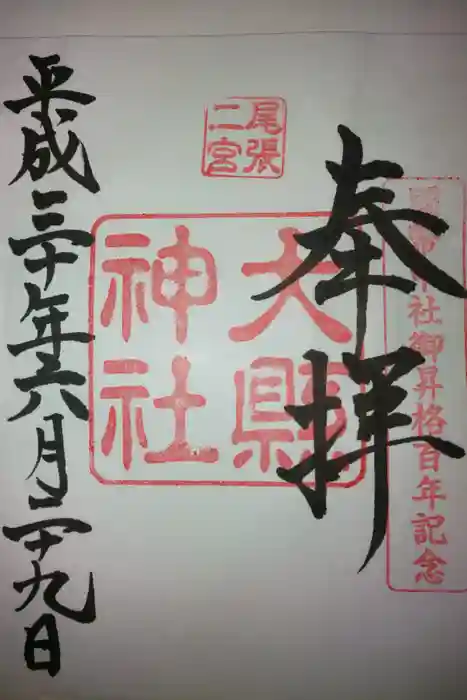 國幣中社御昇格百年記念
奉拝
尾張
二宮
大縣
神社
平成三十年六月二十九日